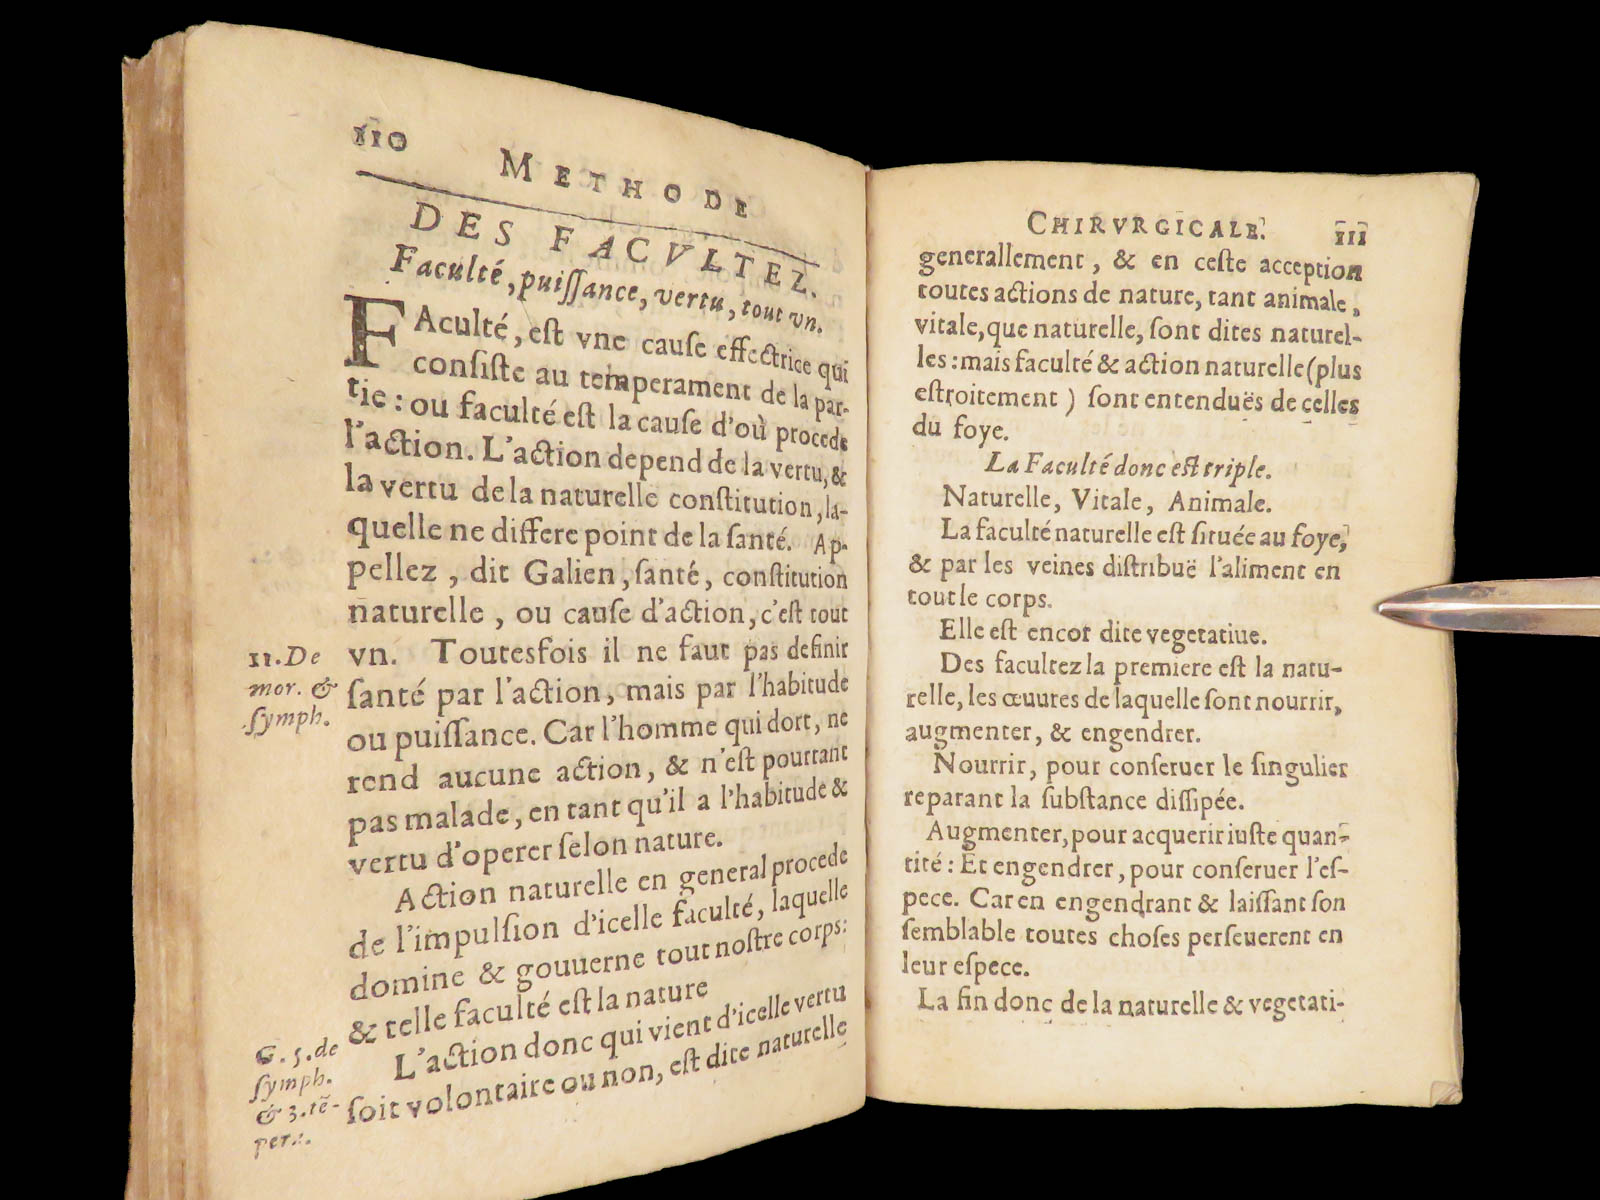 110
METHODE
DES FACVLTEZ.
Faculté, puiſſance, vertu, tout vn.
FAculté, eſt vne cauſe effectrice qui
conſiſte au temperament de la par-
tie : ou faculté eſt la cauſe d'où procede
l'action. L'action depend de la vertu, &
la vertu de la naturelle conſtitution, la-
quelle ne differe point de la ſanté. Ap-
pellez, dit Galien, ſanté, conſtitution
naturelle, ou cauſe d'action, c'eſt tout
vn. Toutesfois il ne faut pas definir
ſanté par l'action, mais par l'habitude
ou puiſſance. Car l'homme qui dort, ne
rend aucune action, & n'eſt pourtant
pas malade, en tant qu'il a l'habitude &
vertu d'operer ſelon nature.
Action naturelle en general procede
de l'impulſion d'icelle faculté, laquelle
domine & gouuerne tout noſtre corps:
& telle faculté eſt la nature
L'action donc qui vient d'icelle vertu
ſoit volontaire ou non, eſt dite naturelle
11. De
mor. &
ſymph.
G. 5. de
ſymph.
& 3. tē-
per.
CHIRVRGICALE. 111
generallement, & en ceſte acception
toutes actions de nature, tant animale,
vitale, que naturelle, ſont dites naturel-
les : mais faculté & action naturelle (plus
eſtroitement) ſont entenduës de celles
du foye.
La Faculté donc eſt triple.
Naturelle, Vitale, Animale.
La faculté naturelle eſt ſituée au foye,
& par les veines diſtribuë l'aliment en
tout le corps.
Elle eſt encor dite vegetatiue.
Des facultez la premiere eſt la natu-
relle, les œuures de laquelle ſont nourrir,
augmenter, & engendrer.
Nourrir, pour conſeruer le ſingulier
reparant la ſubſtance diſſipée.
Augmenter, pour acquerir iuſte quan-
tité : Et engendrer, pour conſeruer l'eſ-
pece. Car en engendrant & laiſſant ſon
ſemblable toutes choſes perſeuerent en
leur eſpece.
La fin donc de la naturelle & vegetati-